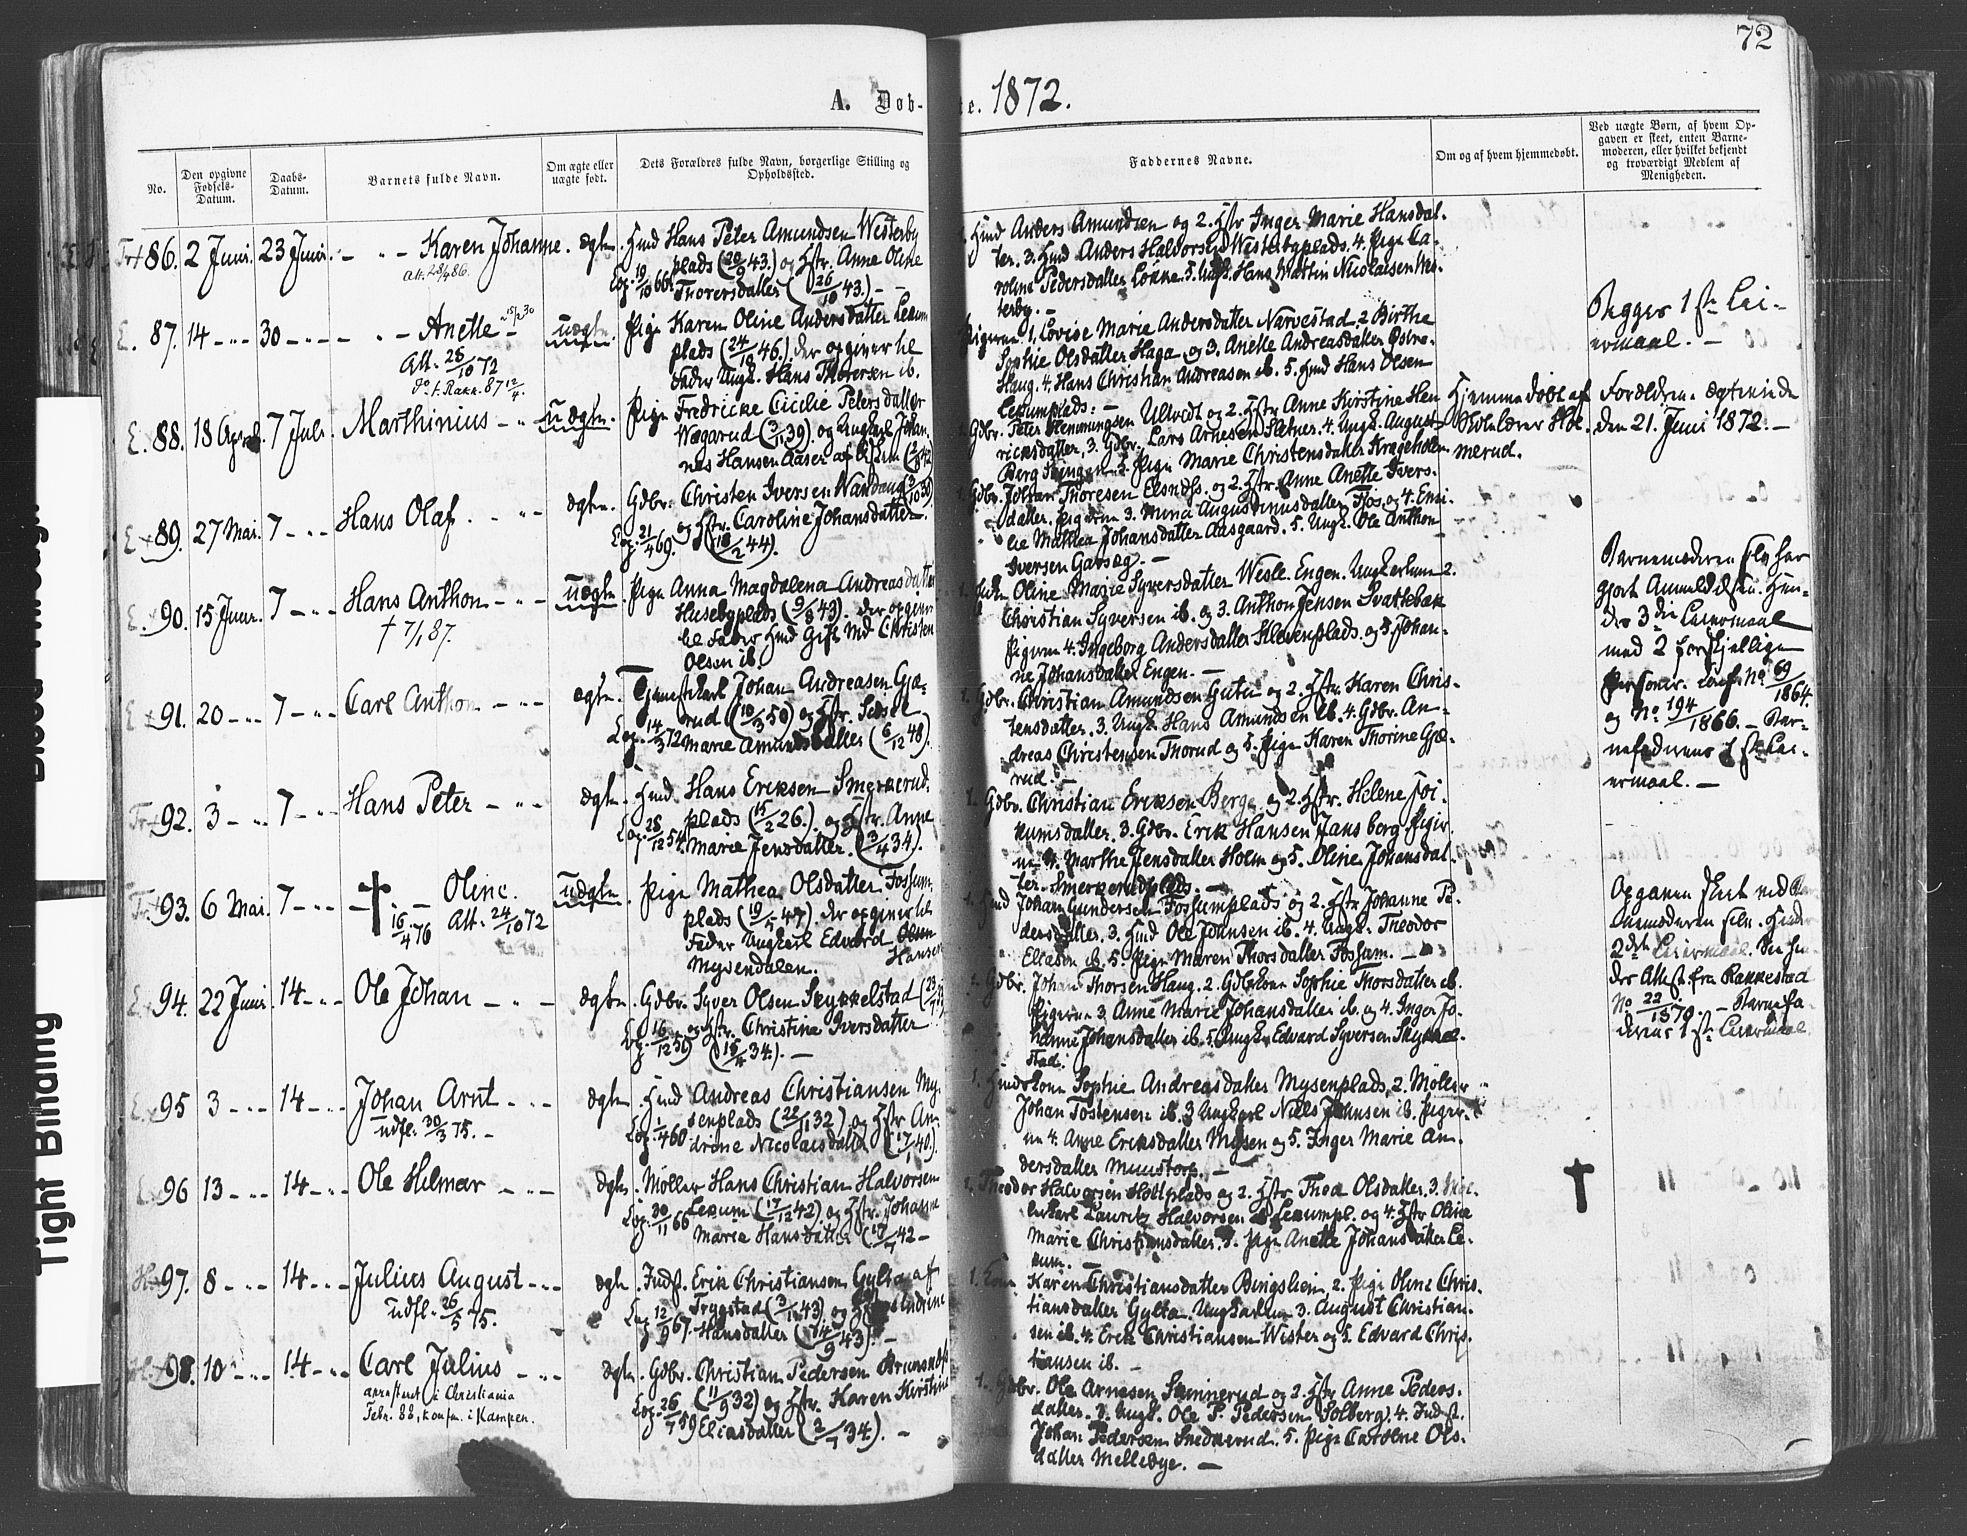 72
A. Døb-
te. 1872.
No.
Den opgivne
Fødsels-
Datum.
Daabs-
Datum.
Barnets fulde Navn.
Om ægte eller
uægte født.
Dets Forældres fulde Navn, borgerlige Stilling og
Opholdssted.
Faddernes Navne.
Om og af hvem hjemmedøbt.
Ved uægte Børn, af hvem Op-
gaven er skeet, enten Barne-
moderen, eller hvilket bekjendt
og troværdigt Medlem af
Menigheden.
86. 2 Juni. 23 Juni. Karen Johanne. ægte. Hmd Hans Peter Amundsen Westerby
plads (20/9 43.) og Hstr. Anne Oline
Thorersdatter (26/10 43.)
Anders Amundsen og 2. Hstr Inger Marie Hansdat-
ter. 3. Hmd Anders Halvorsen Westerbyplads. 4. Pige Ca-
roline Pedersdatter Løkke. 5. Ungk. Hans Martin Nicolaisen Wes-
terby.
87. 14 30 Anette uægte. Pige Karen Oline Andersdatter Lexum
Att. 28/10 72
plads (24/18 46.) der opgiver til
Fader Ungk. Hans Thorersen ib.
Pigerne 1. Lovise Marie Andersdatter Narvestad. 2 Birthe
Sophie Olsdatter Haga og 3. Anette Andreasdatter Østre-
Haug. 4. Hans Christian Andreasen ib. 5. Hmd Hans Olsen
Lexumplads.
Begges 1ste Lei-
ermaal.
88. 18 April. 7 Juli. Marthinius uægte. Pige Fredricke Cicilie Petersdatter
Wægarud (3/11 39) og Ungkarl Johan-
nes Hansen Aaser af
Gdbr. Peter Hemmingsen Ultvedt og 2. Hstr Anne Kirstine Hen
ricksdatter. 3. Gdbr. Lars Arnesen Sletner. 4. Ungk. August
Berg 5. Pige Marie Christensdatter Krageholen
Hjemmedøbt af
Skolelærer Hol-
merud.
Forældrene ægteviede
den 21. Juni 1872.
89. 27 Mai. 7 Hans Olaf. ægte. Gdbr. Christen Iversen Nandaug
og Hstr. Caroline Johansdatter
(18/2 44).
Gdbr. Johan Thoresen og 2. Hstr. Anne Anette Ivers-
datter. Pigerne 3. Mina Augustinusdatter Fos og 4. Emi-
lie Mathea Johansdatter Aasgaard. 5. Ungk. Ole Anthon
Iversen Garseg.
90. 15 Juni. 7 Hans Anthon uægte Pige Anna Magdalena Andreasdatter
† 7/1 87.
Husebyplads (9/8 43). der opgiver
til Fader Hmd Gift Md Christen
Olsen ib.
Oline Marie Syversdatter Westl. Engen. Ungkarlene 2.
Christian Syversen ib. og 3. Anthon Jensen Svartebæk
Pigerne 4. Ingeborg Andersdatter Klevenplads. og 5. Johan-
ne Johansdatter Engen.
Barnemoderen selv har
gjort Anmeldelsen. Hen-
des 3die Leiermaal
med 2 forskjellige
Personer. conf. No 69/1864.
og No 194/1866. Bar-
nefaderens 1ste Lei-
ermaal.
91. 20 7 Carl Anthon ægte. Tjenestekarl Johan Andreasen Gjæ-
rud (10/3 50) og Hstr. Sidsel
Marie Amundsdatter (6/12 48).
Gdbr. Christian Amundsen Gutu og 2. Hstr. Karen Chris-
tensdatter. 3. Ungk. Hans Amundsen ib. 4. Gdbr. An-
dreas Christensen Thorud og 5. Pige Karen Thorine Gjæ-
rud.
92. 3 7 Hans Peter ægte. Hmd. Hans Eriksen Smerkerud-
plads (15/2 26.) og Hstr. Anne
Marie Jensdatter. (3/4 34).
Gdbr. Christian Eriksen Berge og 2. Hstr. Helene Joi-
kumsdatter. 3. Gdbr. Erik Hansen Jansberg. Piger-
ne 4. Marthe Jensdatter Holm og 5. Oline Johansdat-
ter. Smerkerudplads.
93. 6 Mai. 7 † Oline. uægte. Pige Mathea Olsdatter Fossum-
16/4 76 Att. 24/10 72
plads (19/5 47). der opgiver til
Fader Ungkarl Edvard Olsen
Hansen
Mysendalen.
Hmd Johan Gundersen Fossumplads og 2. Hstr Johanne Pe-
dersdatter. 3. Hmd Ole Johnsen ib. 4. Ungk. Theodor
ib. 5. Pige Maren Thorsdatter Fossum.
Opgaven skeet ved Bar-
nemoderen selv. Hendes
2det Leiermaal.
Attest fra Rakkestad
No 22/1870. Barnefa-
derens 1ste Leiermaal
94. 22 Juni. 14 Ole Johan ægte. Gdbr. Syver Olsen Skykkelstad
og Hstr. Christine Iversdatter
(18/4 34).
Gdbr. Johan Thorsen Haug. 2. Gdbrkone Sophie Thorsdatter ib.
Pigerne 3. Anne Marie Johansdatter ib. og 4. Inger Jo-
hanne Johansdatter ib. 5. Ungk. Edvard Syversen Skykkel-
stad.
95 3 14 Johan Arnt ægte Hmd Andreas Christiansen My-
udfl. 30/3 75.
senplads (22/11 32) og Hstr An-
drine Nicolaisdatter (17/1 40).
Hmdskone Sophie Andreasdatter Mysenplads. 2. Møller
Johan Tostensen ib. 3 Ungkarl Niels Johnsen ib. Piger-
ne 4. Anne Eriksdatter Mysen og 5. Inger Marie An-
dersdatter Monstorp.
96 13 14 Ole Helmar ægte. Møller Hans Christian Halvorsen
Lexum (17/12 42) og Hstr. Johanne
Marie Hansdatter
Theodor Halvorsen Holtplads og 2. Hstr Thea Olsdatter. 3. Møl-
lerkarl Lauritz Halvorsen Lexumpl. og 4. Hstr Oline
Marie Christiansdatter. 5. Pige Anette Johansdatter Le-
xum.
†
97. 8 14 Julius August ægte. Indst. Erik Christiansen Gylta af
udfl. 26/5 75.
Trygstad (3/11 43) og Hstr Andrine
Hansdatter (14/9 43).
Karen Christiansdatter Bingslien, 2. Pige Oline Chris-
tiansdatter Gylta. Ungkarlene 3. August Christian-
sen ib. 4. Erik Christiansen Wister og 5. Edvard Chris-
tiansen ib.
98. 10 14 Carl Julius ægte. Gdbr. Christian Pedersen
i Christiania
Febr. 88, konfm. i Kampen.
(11/9 32) og Hstr. Karen Kirstine
Eliasdatter (2/7 34).
Gdbr. Ole Arnesen Skinnerud og 2. Hstr Anne Peders-
datter. 3. Ungk. Ole P. Pedersen Solberg. 4. Indst.
Johan Pedersen Snedkerud. 5. Pige Caroline Ols-
datter Mellebye.
Tight Binding